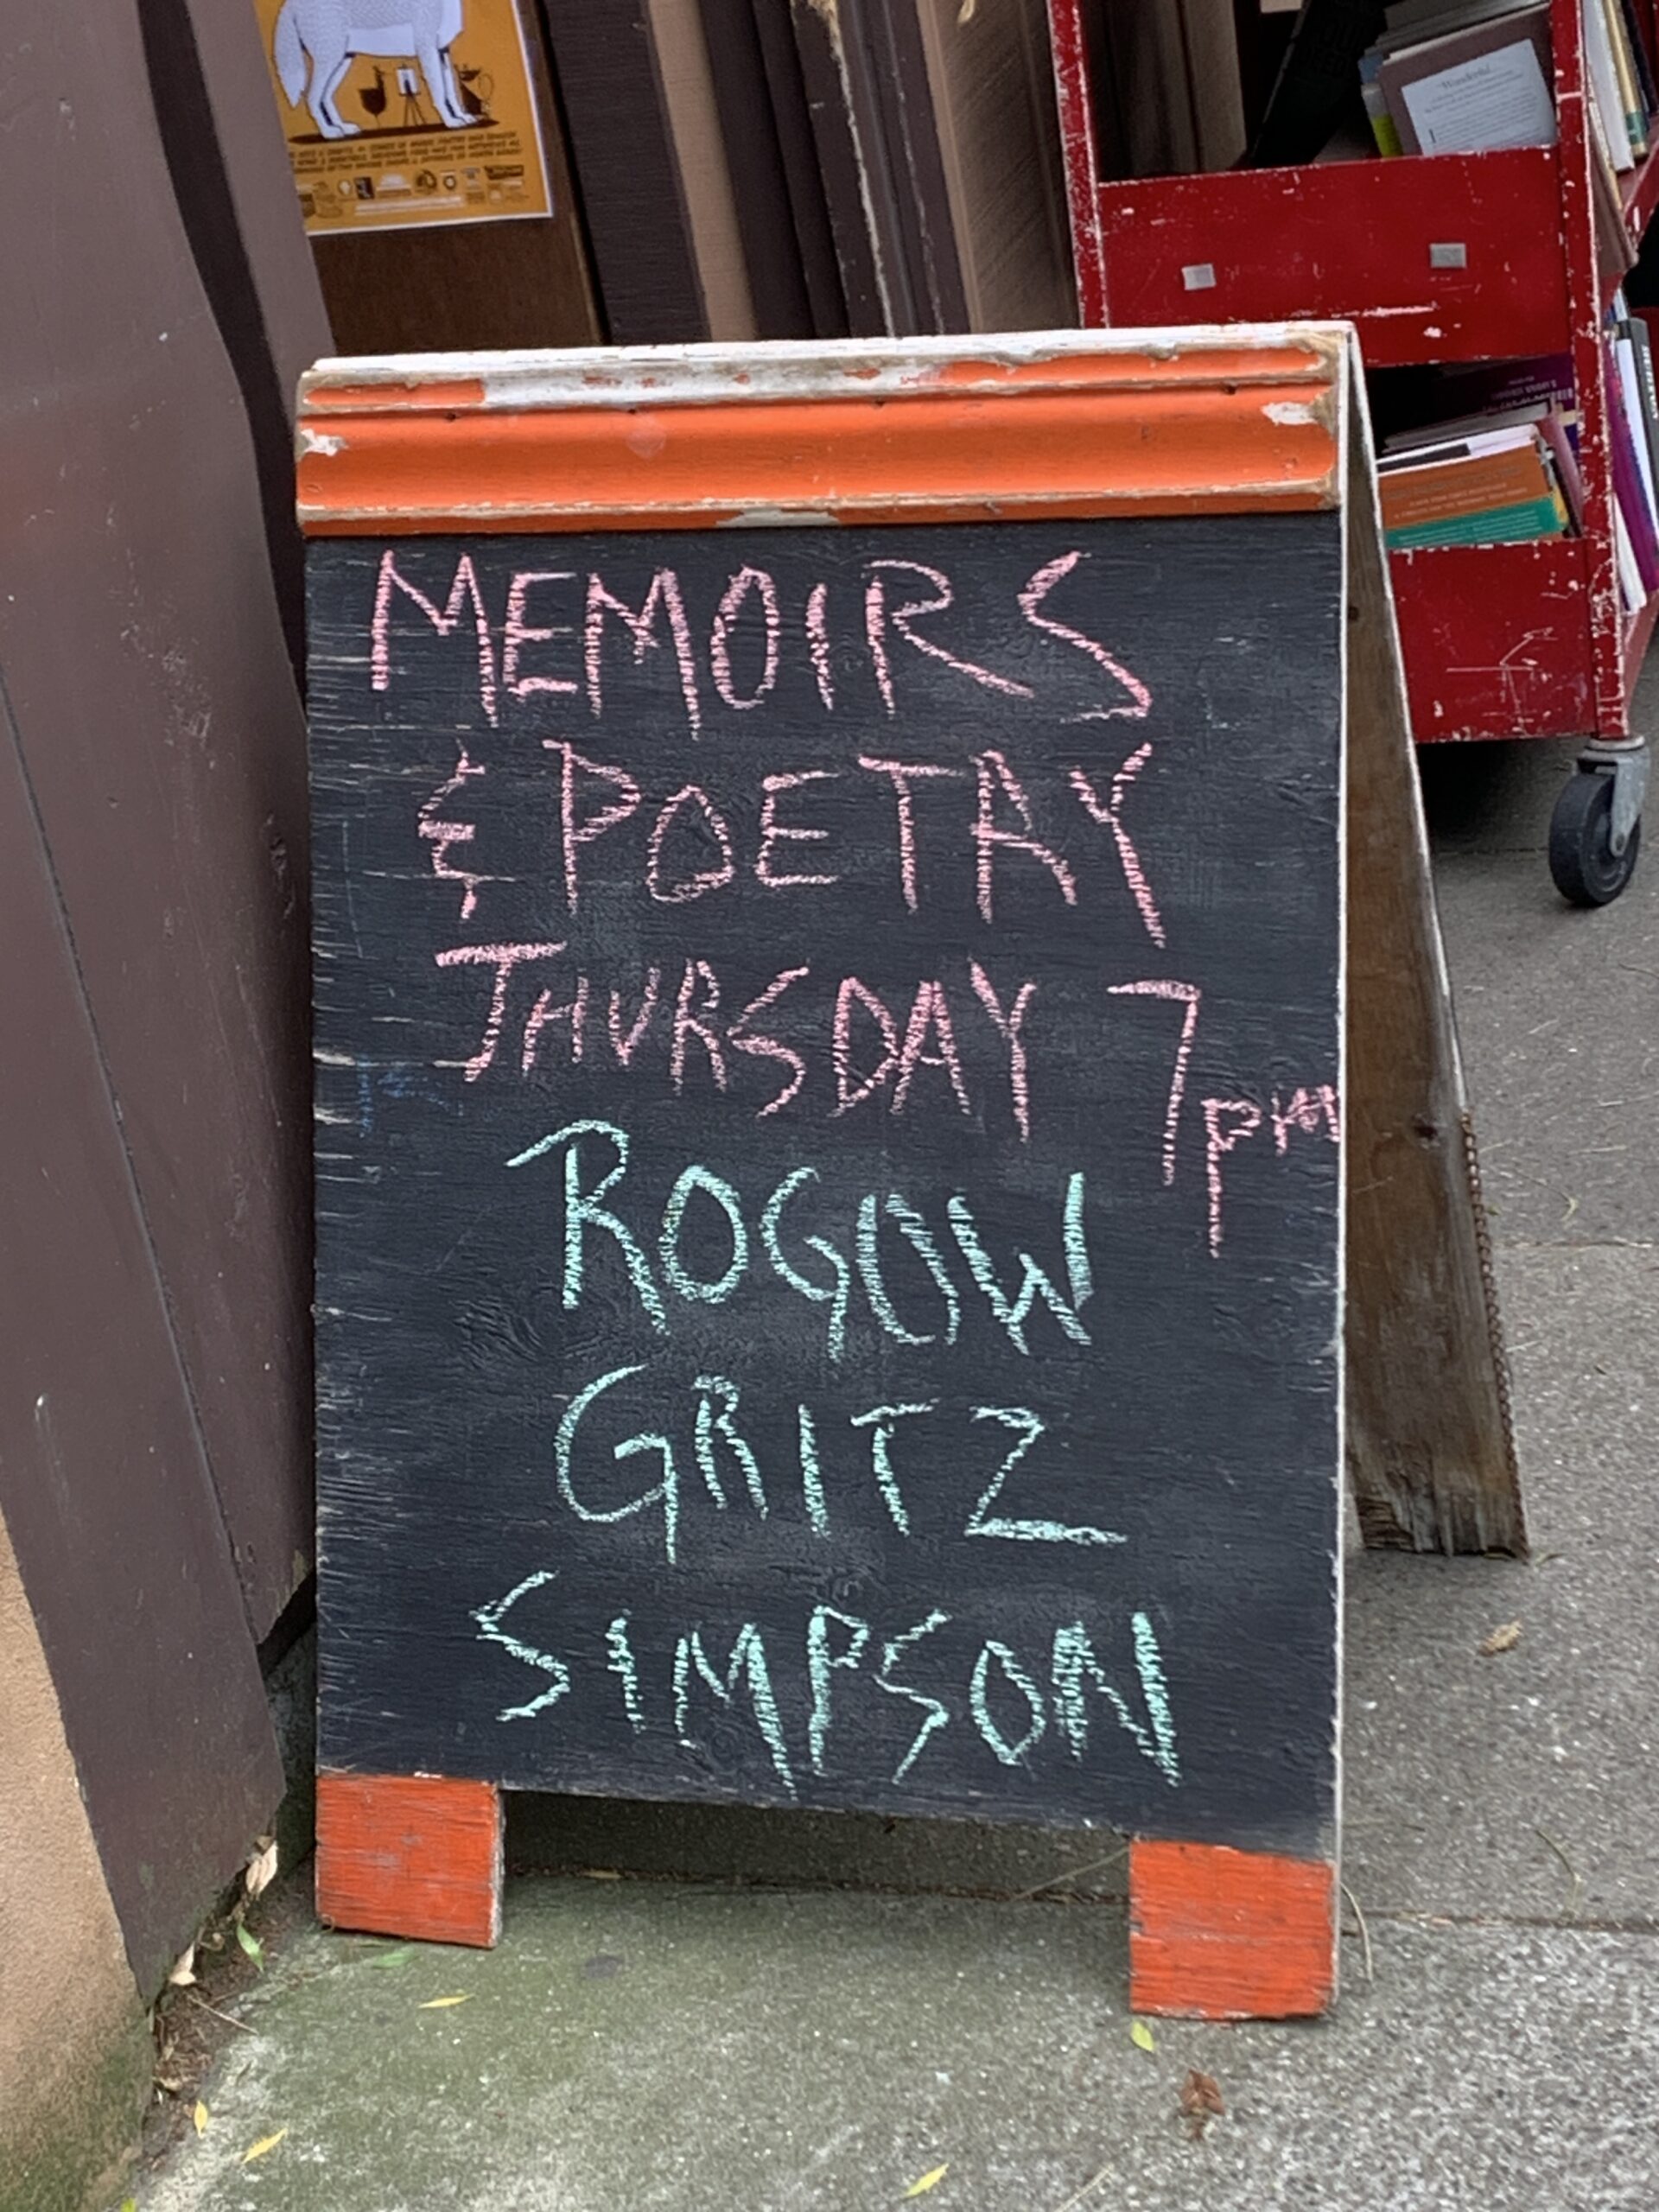 MEMOIRS
& POETRY
THURSDAY 7pm
ROGOW
GRITZ
SIMPSON
Wonderful